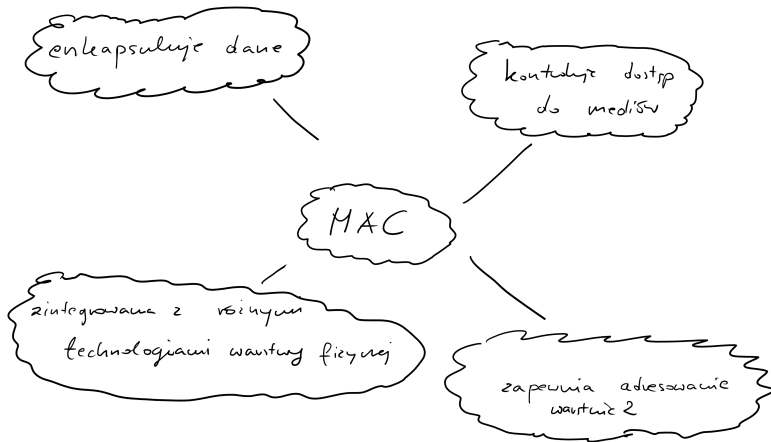 enkapsuluje dane
kontroluje dostęp
do mediów
MAC
zintegrowana z różnymi
technologiami warstwy fizycznej
zapewnia adresowanie
warstwie 2